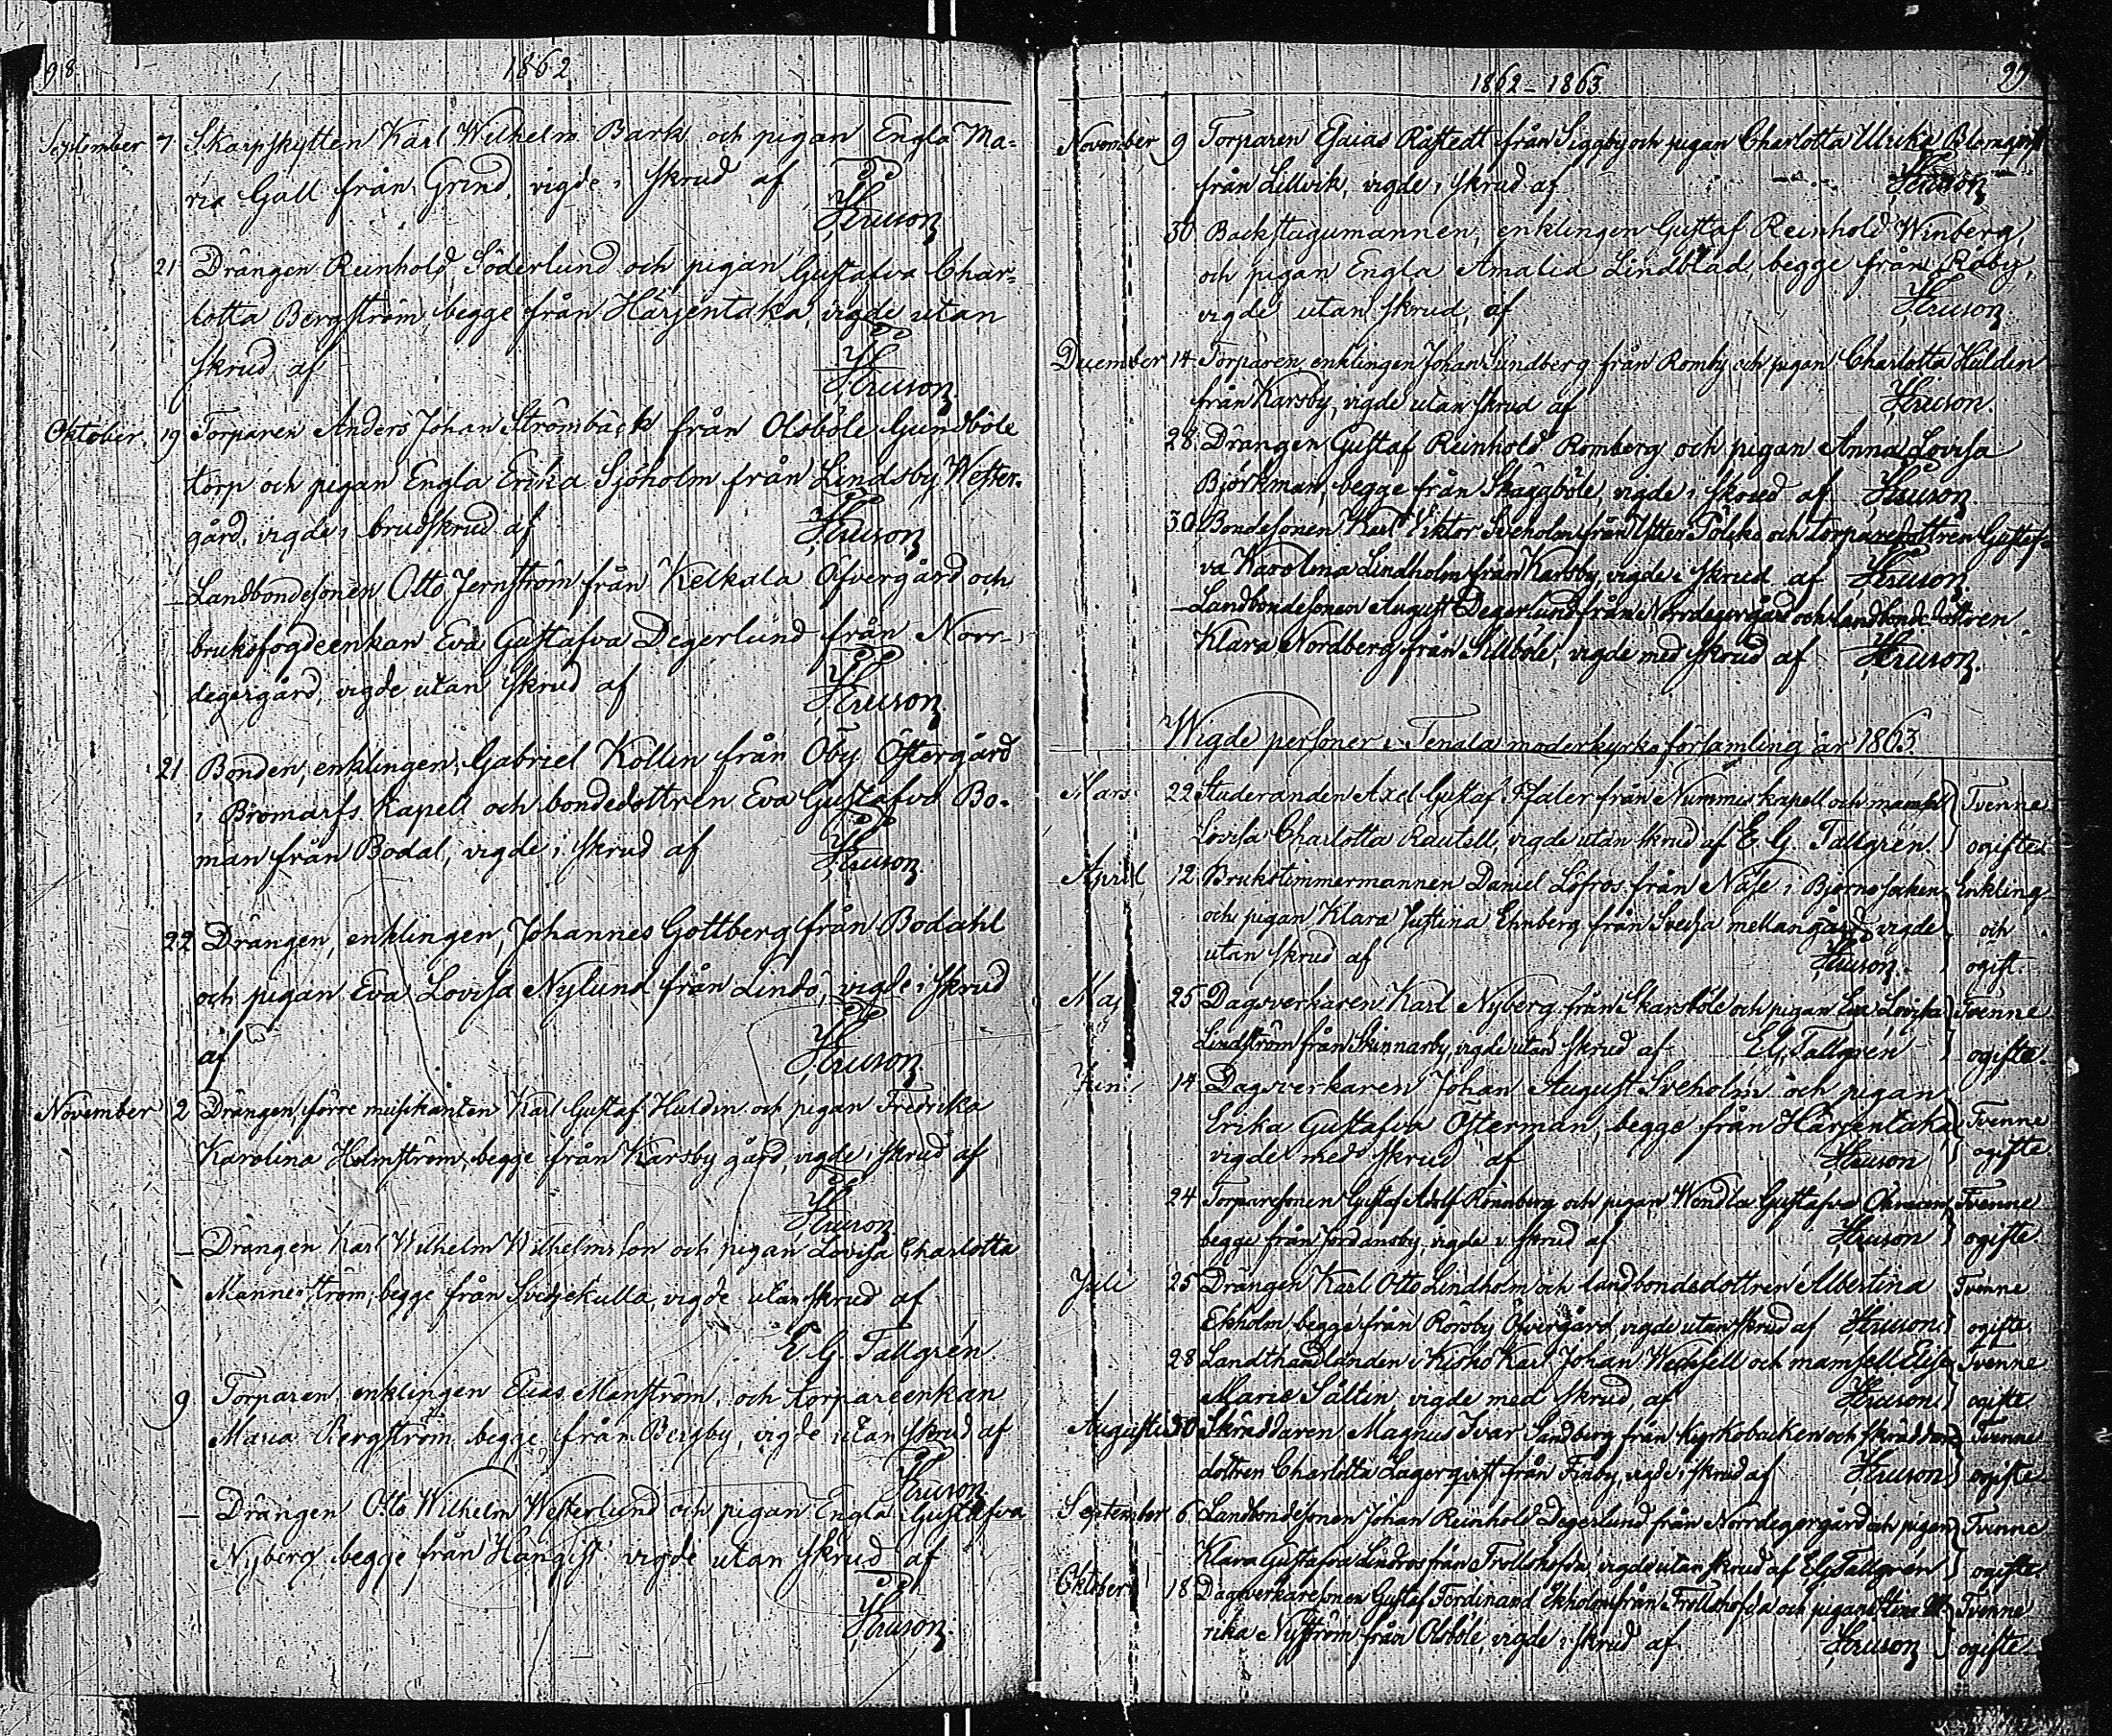 98
1862
September 7 Skarpskytten Karl Wilhelm Bark och pigan Engla Ma-
ria Gall från Grind, vigde i skrud af
21 Drängen Reinhold Söderlund och pigan Gustafva Char-
lotta Bergström, begge från Härjentaka, vigde utan
skrud af
Oktober 19 Torparen Anders Johan Strömbäck från Olsböle Gundböle
torp och pigan Engla Erika Sjöholm från Lindsby Wester-
gård, vigde i brudskrud af
— Landbondesonen Otto Jernström från Kelkala Öfvergård och
bruksfogdeenkan Eva Gustafva Degerlund från Norr-
degergård, vigde utan skrud af
21 Bonden, enklingen, Gabriel Kollin från Öby Östergård
i Bromarfs Kapell och bondedottren Eva Gustafva Bo-
man från Bodal, vigde i skrud af
22 Drängen, enklingen, Johannes Gottberg från Bodahl
och pigan Eva Lovisa Nylund från Lindö, vigde i skrud
af
November 2 Drängen, förre musikanten Karl Gustaf Huldin och pigan Fredrika
Karolina Holmström, begge från Karsby gård, vigde i skrud af
— Drängen Karl Wilhelm Wilhelmsson och pigan Lovisa Charlotta
Mannerström, begge från Svedjekulla, vigde utan skrud af
E. G. Tallgrén
9 Torparen, enklingen Elias Manström, och torpareenkan
Maria Bergström begge från Bergby, vigde utan skrud af
— Drängen Otto Wilhelm Westerlund och pigan Engla Gustafva
Nyberg begge från Hangist vigde utan skrud af
1862 - 1863
99
November 9 Torparen Esaias Råstedt från Siggby och pigan Charlotta Ulrika Blomqvist
från Lillvik, vigde i skrud af
30 Backstagumannen, enklingen Gustaf Reinhold Winberg,
och pigan Engla Amalia Lindblad begge från Råby,
vigde utan skrud, af
December 14 Torparen, enklingen Johan Sundberg från Romby och pigan Charlotta Huldin
från Karsby, vigde utan skrud af
28 Drängen Gustaf Reinhold Romberg och pigan Anna Lovisa
Björkman, begge från Skäggböle, vigde i skrud af
30 Bondesonen Karl Viktor Sveholm från Ytter Pölsko och torparedottren Gustaf-
va Karolina Lindholm från Karsby, vigde i skrud af
— Landbondesonen August Degerlund från Norrdegergård och landbondedottren
Klara Nordberg från Sillböle, vigde med skrud af
Wigde personer i Tenala moderkyrkoförsamling år 1863
Mars 22 Studeranden Axel Gustaf Pfaler från Nummis kapell och mamsell Tvenne
Lovisa Charlotta Rautell, vigde utan skrud af E. G. Tallgrén. ogifta
April 12 Brukstimmermannen Daniel Löfros från Näse i Bjerno socken Enkling
och pigan Klara Justina Ehnberg från Svedja mellangård, vigde och
utan skrud af ogift.
Maj 25 Dagsverkaren Karl Nyberg från Skarsböle och pigan Eva Lovisa Tvenne
Lindström från Skinnarby, vigde utan skrud af E. G. Tallgrén ogifta.
Juni 14 Dagsverkaren Johan August Sveholm och pigan
Erika Gustafva Österman, begge från Härjentaka Tvenne
vigde med skrud af ogifte
24 Torparesonen Gustaf Adolf Rönnberg och pigan Wendla Gustafva Öhman, Tvenne
begge från Jordansby, vigde i skrud af ogifte
Juli 25 Drängen Karl Otto Lindholm och landbondedottren Albertina Tvenne
Ekholm, begge från Rörsby Öfvergård, vigde utan skrud af ogifte
28 Landthandlanden i Kisko Karl Johan Wechsell och mamsell Elise Tvenne
Marie Sältin, vigde med skrud, af ogifte
Augusti 30 Skräddaren Magnus Ivar Sandberg från Kyrkobacken och skräddare- Tvenne
dottren Charlotta Lagerqvist från Finby, vigde i skrud af ogifte
September 6 Landbondesonen Johan Reinhold Degerlund från Norrdegergård och pigan Tvenne
Klara Gustafva Lindros från Trollshofda, vigde utan skrud af E. G. Tallgrén ogifte
Oktober 18 Dagsverkaresonen Gustaf Ferdinand Ekholm från Trollshofda och pigan Stina Ul- Tvenne
rika Nyström från Olsböle, vigde i skrud af ogifte